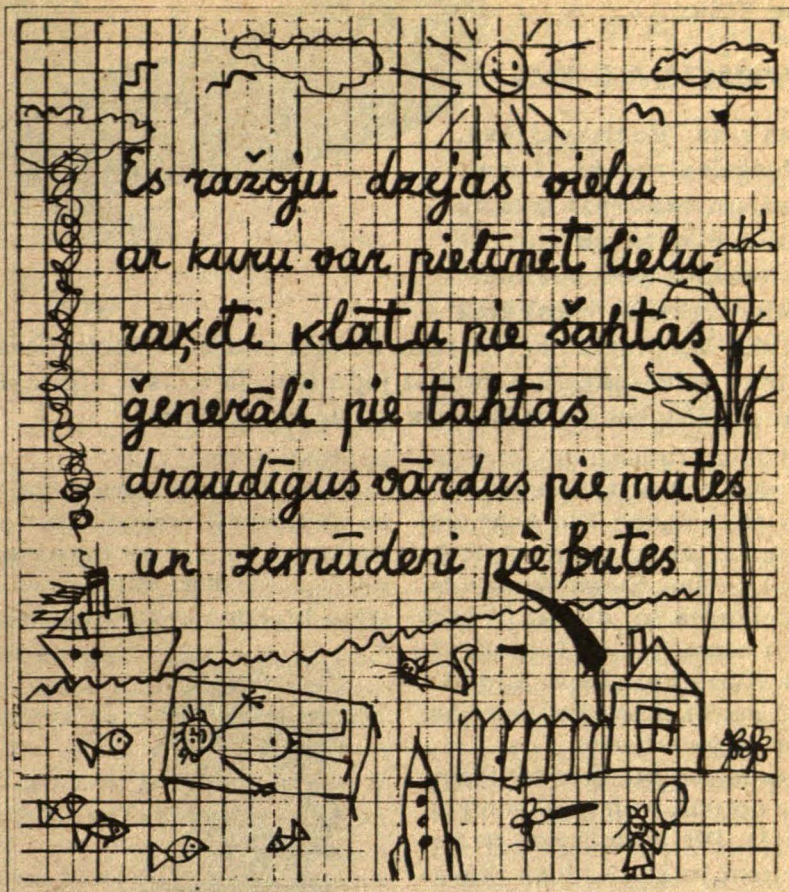 Es ražoju dzejas vielu
ar kuru var pielīmēt lielu
raķeti klātu pie šahtas
ģenerāli pie tahtas
draudīgus vārdus pie mutes
un zemūdeni pie butes